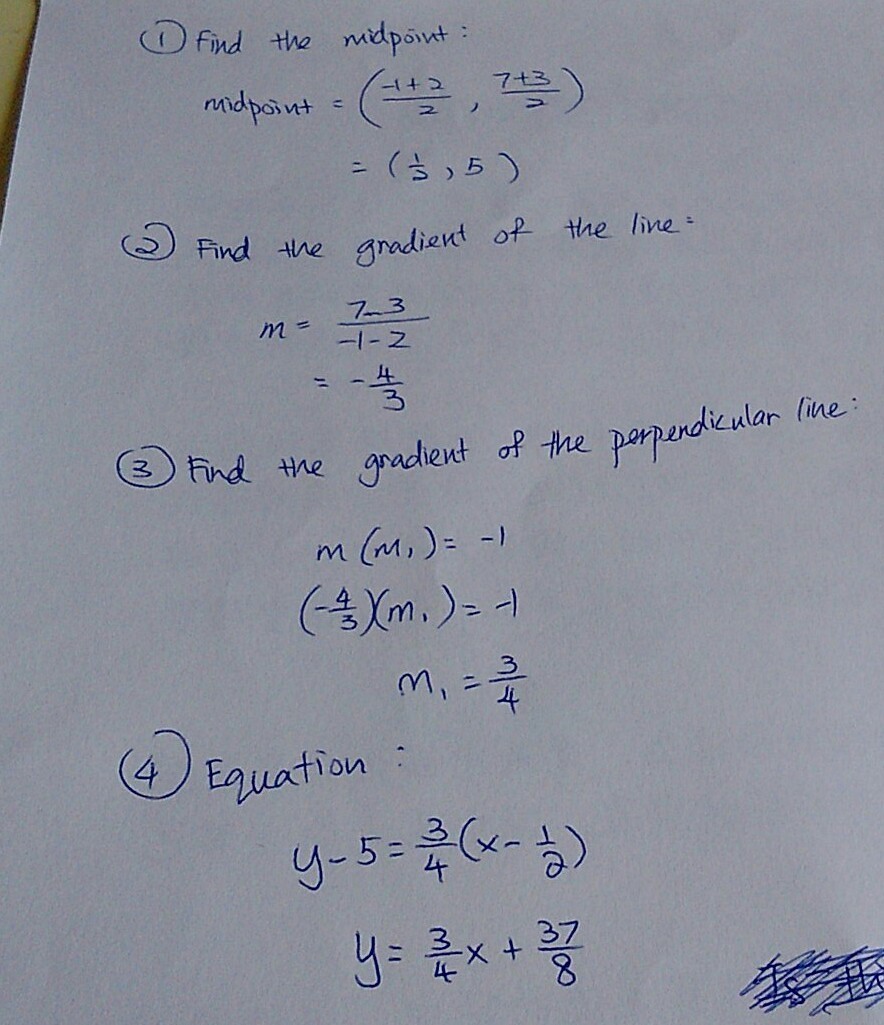 ① Find the midpoint:
midpoint = (\frac{-1+2}{2}, \frac{7+3}{2})
= (\frac{1}{2}, 5)
② Find the gradient of the line:
m = \frac{7-3}{-1-2}
= -\frac{4}{3}
③ Find the gradient of the perpendicular line:
m(m₁) = -1
(-\frac{4}{3})(m₁) = -1
m₁ = \frac{3}{4}
④ Equation:
y - 5 = \frac{3}{4}(x - \frac{1}{2})
y = \frac{3}{4}x + \frac{37}{8}